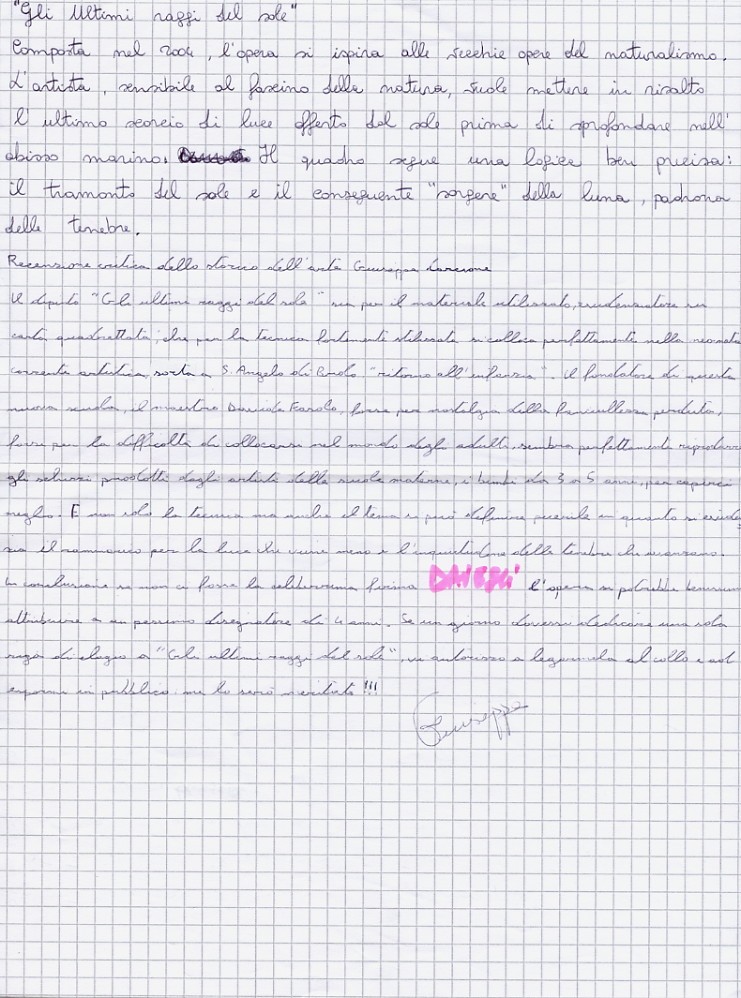 "Gli Ultimi raggi del sole"
Composta nel 2004, l'opera si ispira alle vecchie opere del naturalismo.
L'artista, sensibile al fascino della natura, vuole mettere in risalto
l'ultimo scorcio di luce offerto dal sole prima di sprofondare nell'
abisso marino. Il quadro segue una logica ben precisa:
il tramonto del sole e il conseguente "sorgere" della luna, padrona
delle tenebre.
Recensione critica dello storico dell'arte Giuseppe
Il dipinto "Gli ultimi raggi del sole" sia per il materiale utilizzato, in
carta quadrettata, che per la tecnica fortemente stilizzata si colloca perfettamente nella neonata
corrente artistica, sorta a S. Angelo di Brolo "ritorno all'infanzia". Il fondatore di questa
nuova scuola, il maestro Davide, forse per nostalgia della fanciullezza perduta,
forse per la difficoltà di collocarsi nel mondo degli adulti, sembra perfettamente riprodurre
gli schizzi prodotti dagli artisti delle scuole materne, i bimbi da 3 a 5 anni, per capirci
meglio. E non solo la tecnica ma anche il tema si può definire puerile in quanto si
sia il rammarico per la luce che viene meno e l'inquietudine delle tenebre che avanzano.
In conclusione se non ci fosse la celeberrima firma l'opera si potrebbe benissimo
attribuire a un persino disegnatore di 4 anni. Se un giorno dovessi dedicare una sola
riga di elogio a "Gli ultimi raggi del sole", vi autorizzo a legarmela al collo e ad
espormi in pubblico: me lo sarò meritato!!!
Giuseppe